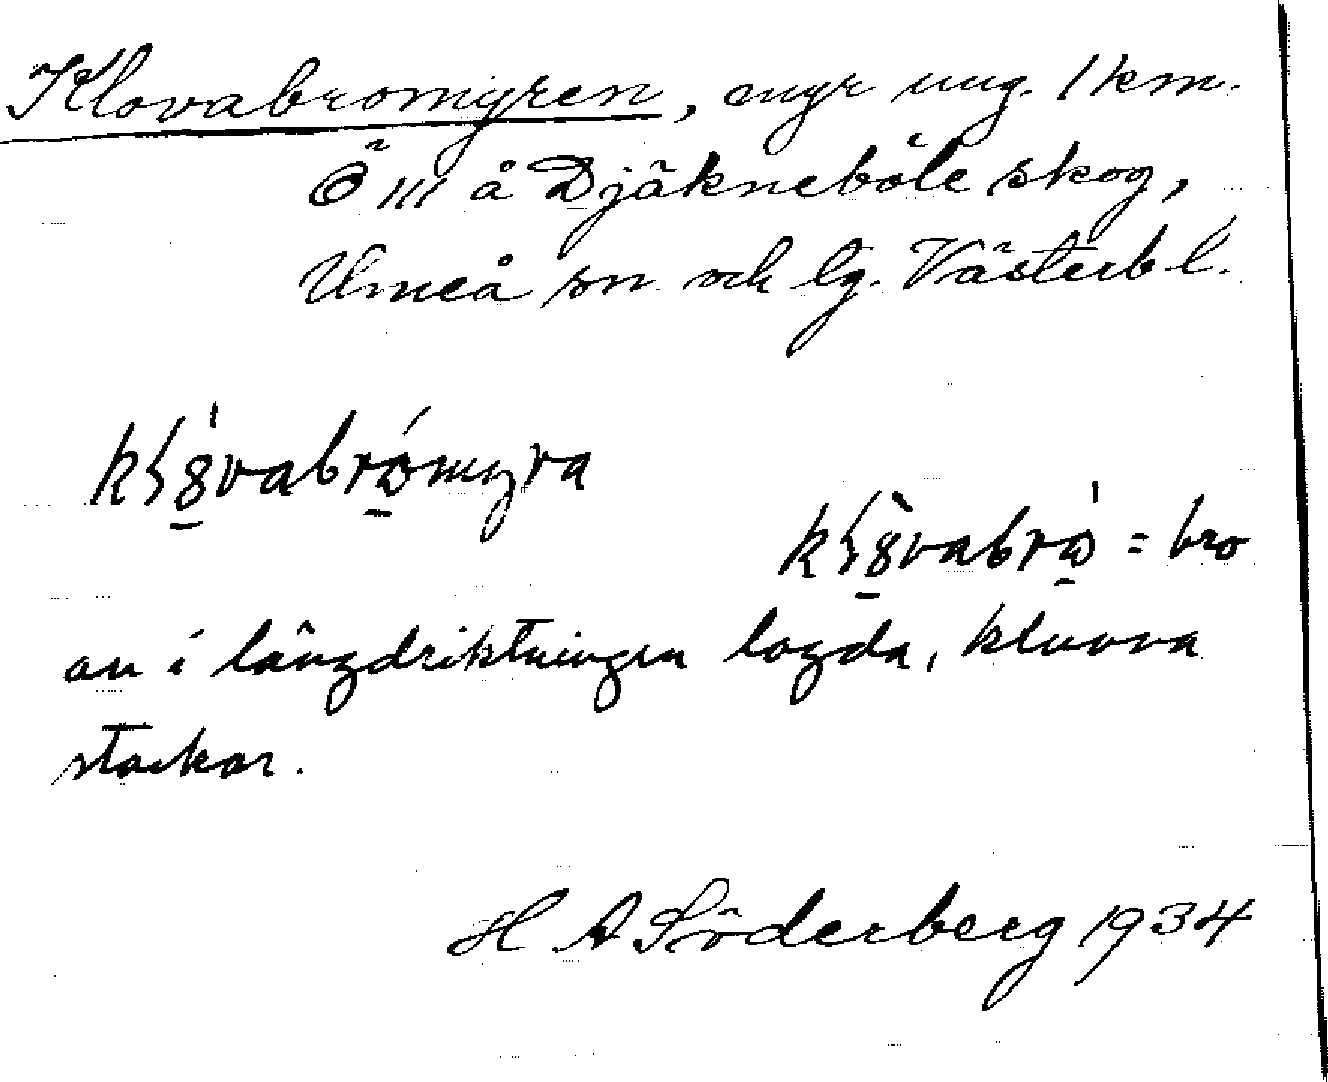 Klovabromyren, myr ung. 1 km.
Ö å Djäkneböle skog,
Umeå sn och lg. Västerb l.
= bro
av i längdriktningen lagda, kluvna
stockar.
H A Söderberg 1934